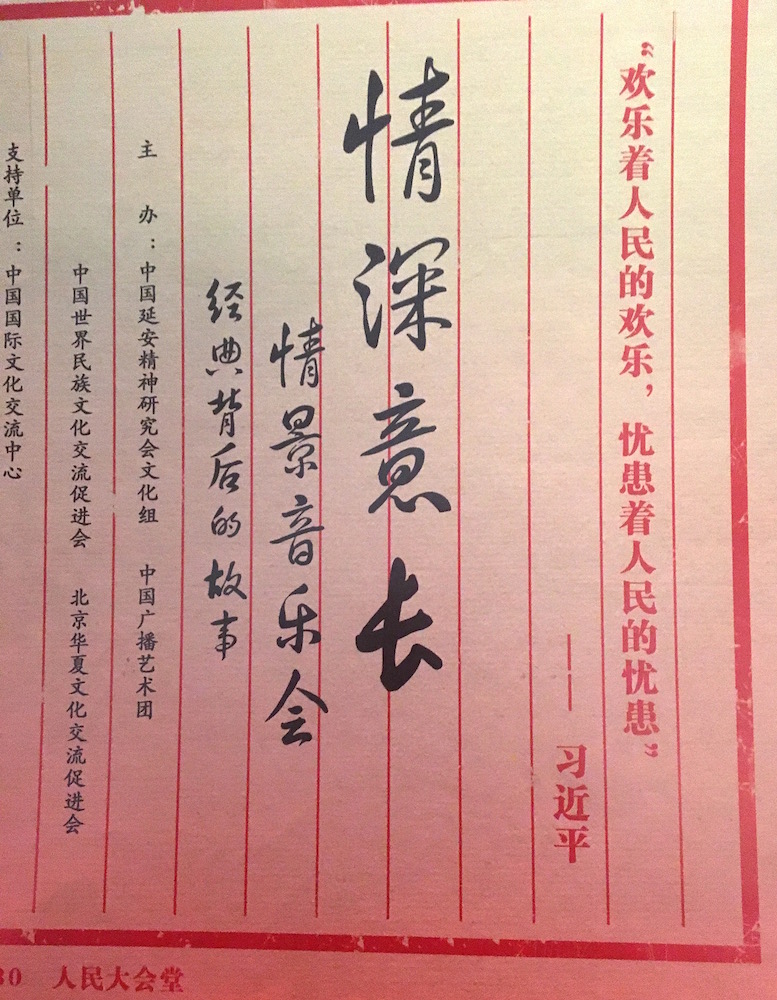 “欢乐着人民的欢乐，忧患着人民的忧患”
——习近平
情深意长
情景音乐会
经典背后的故事
主办：中国延安精神研究会文化组 中国广播艺术团
中国世界民族文化交流促进会 北京华夏文化交流促进会
支持单位：中国国际文化交流中心
30 人民大会堂